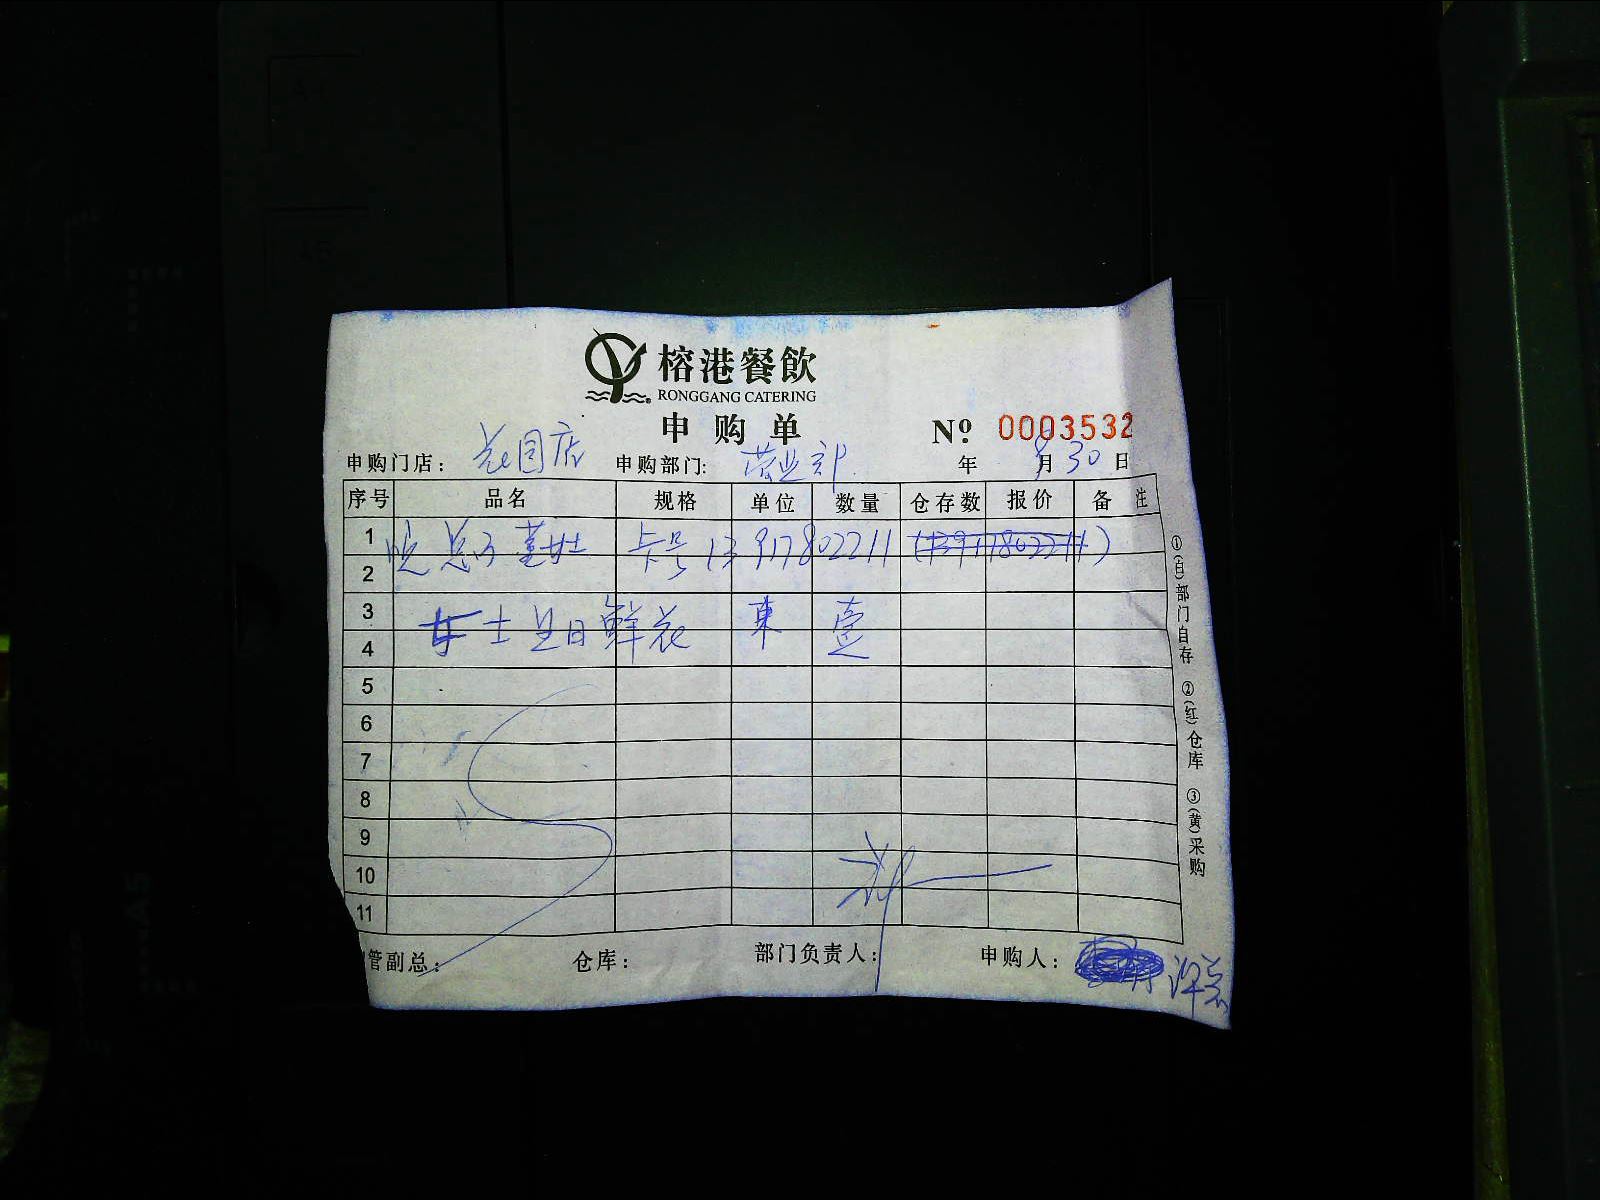 榕港餐飲
RONGGANG CATERING
申购单
№ 0003532
申购门店： 花园店 申购部门: 营业部 年 9月30日
序号 品名 规格 单位 数量 仓存数 报价 备注
1 卡号13917802211
2
3 女士生日鲜花 束 壹
4
5
6
7
8
9
10
11
管副总： 仓库： 部门负责人： 申购人：
①(白)部门自存 ②(红)仓库 ③(黄)采购
A5